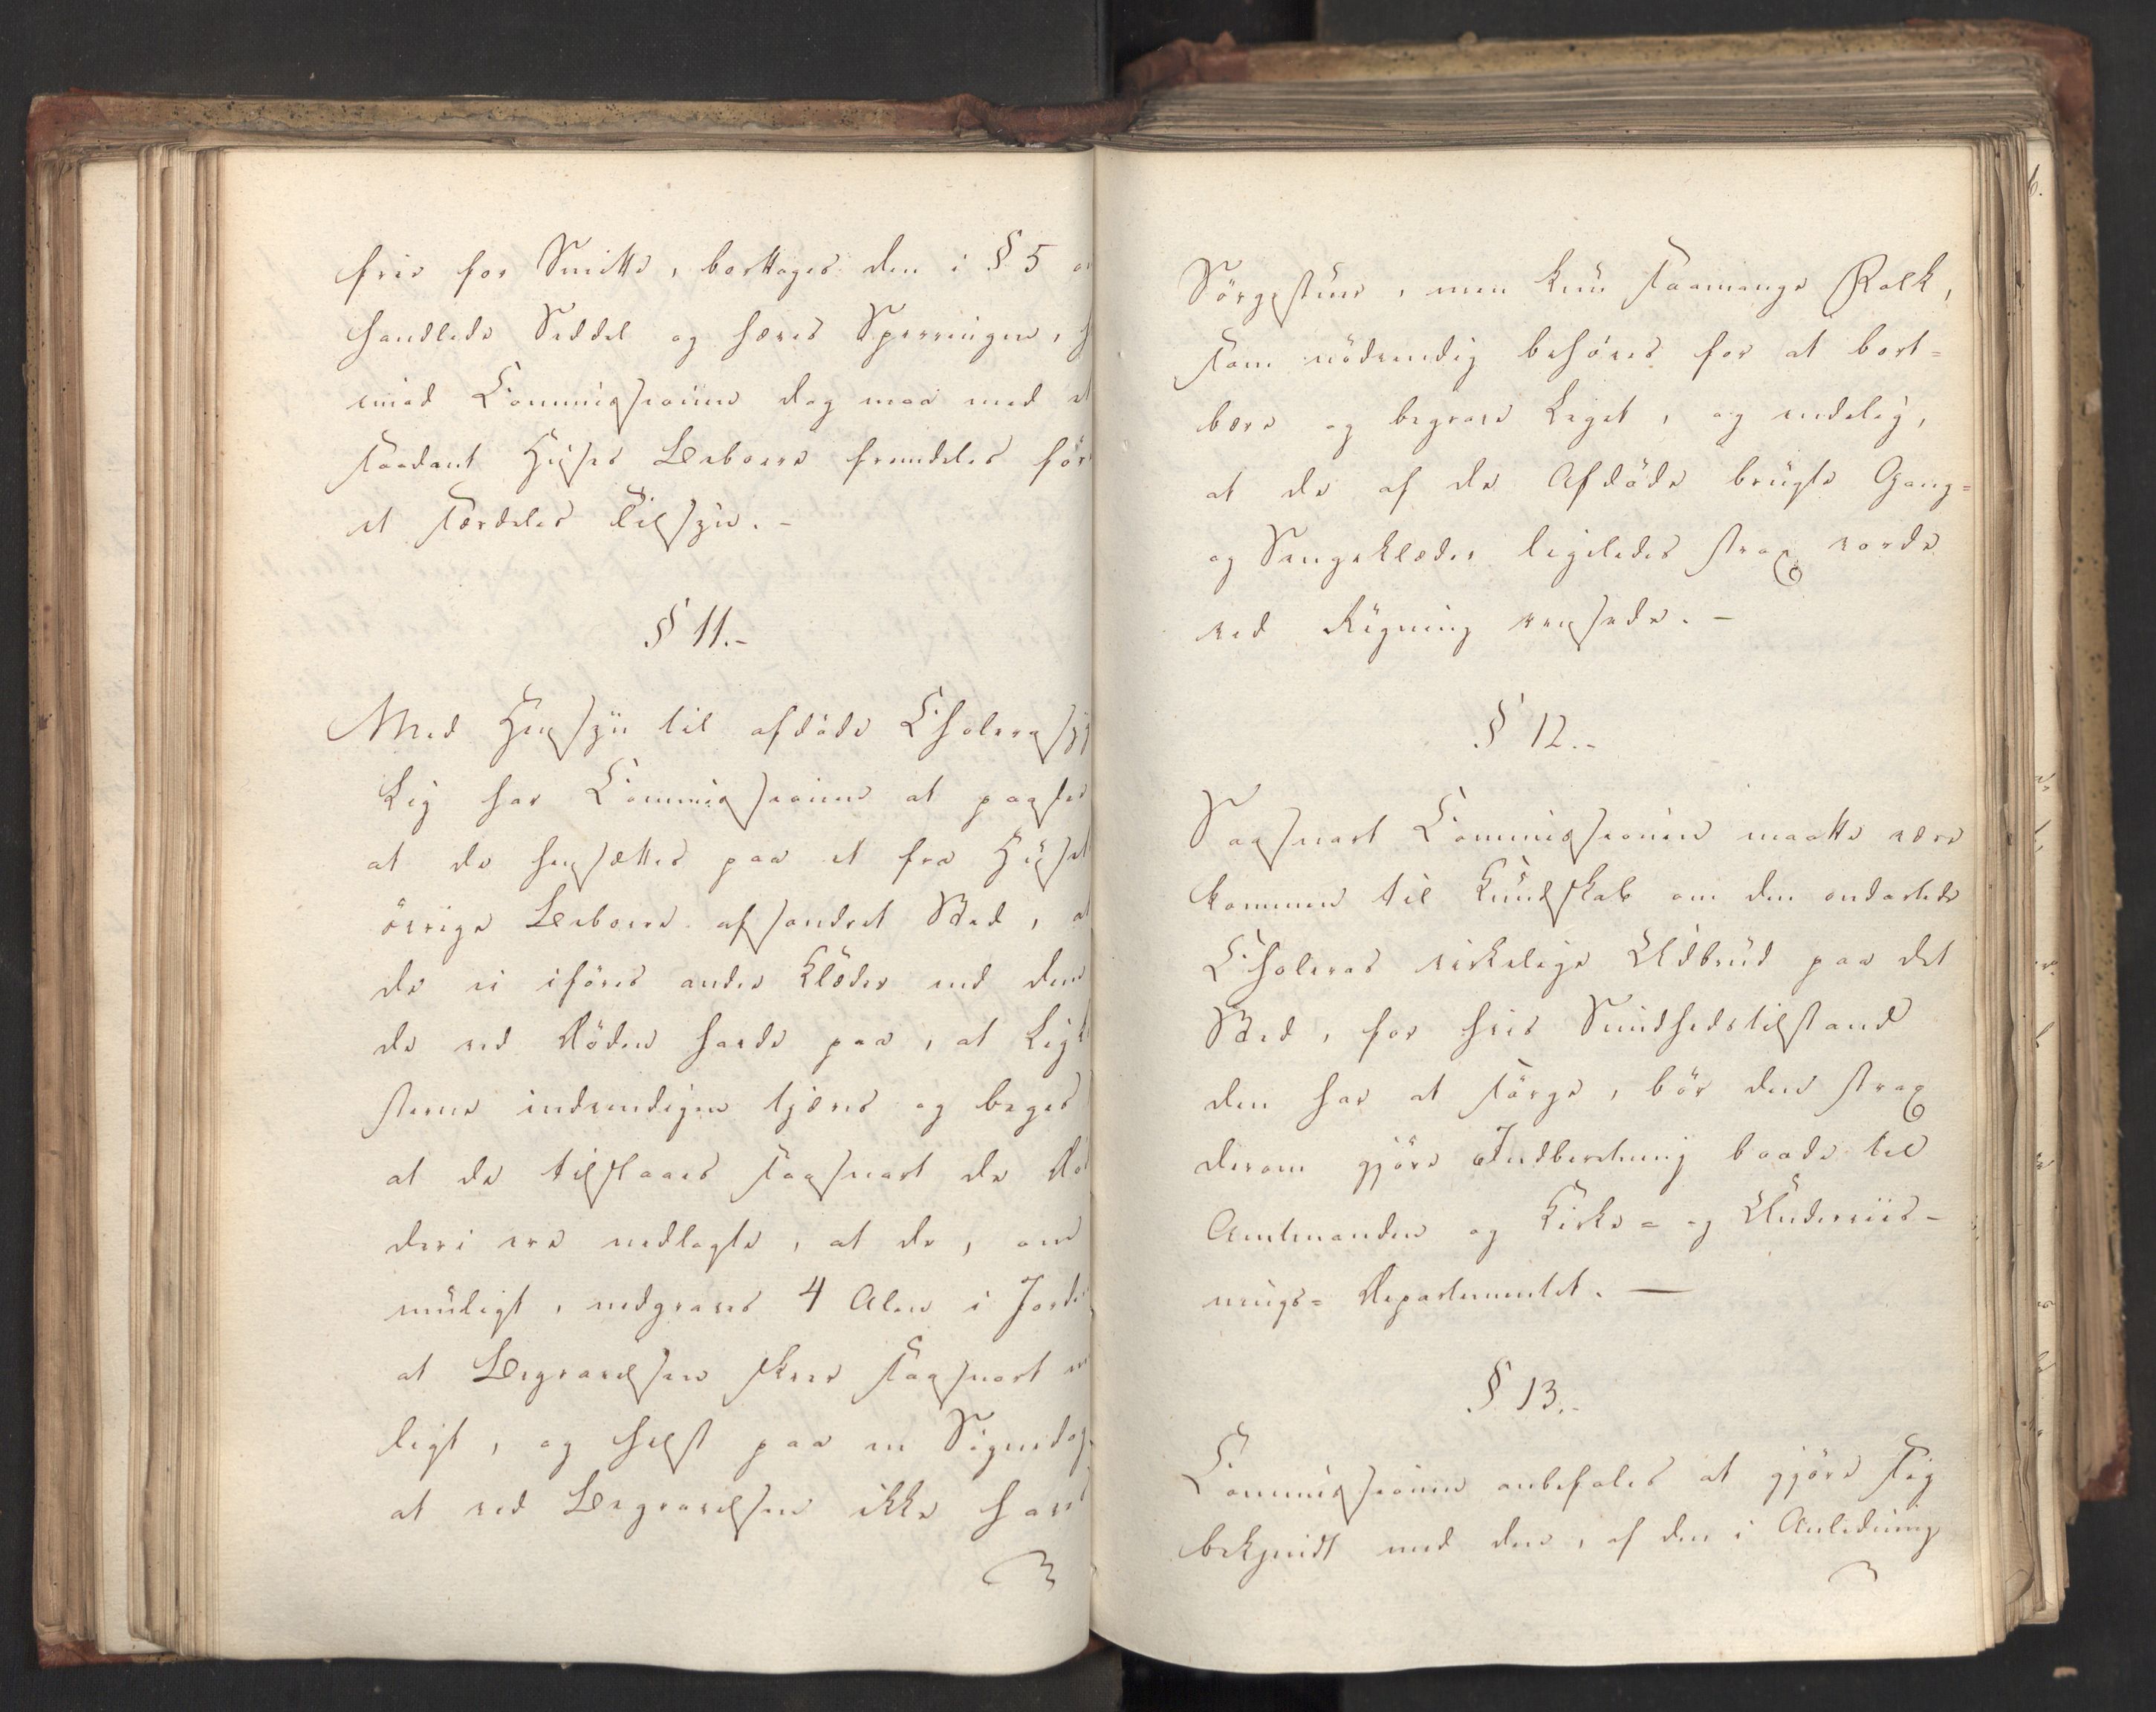 frie for Smitte, borttages den i § 5 om
handlede Seddel og hæves Sperringen, h
imod Commissionen dog maa med et
saadant Huses Beboere fremdeles före
et særdeles Tilsyn. -
§ 11.-
Med Hensyn til afdöde Cholerasyg
Lig har Commissionen at paasee
at de hensættes paa et fra Huset
övrige Beboere afsondret Sted, at
de ei iföres andre Klæder end dem
de ved Döden havde paa, atLigk
sterne indvendigen tjæres og beges
at de tilslaaes saasnart de Dö
deri ere nedlagte, at de, om
muligt, nedgraves 4 Alen i Jorde
at Begravelsen skeer saasnart m
ligt, og helst paa en Sögnedag
at ved Begravelsen ikke har
Sörgestuer, men kun saamange Folk,
som nödvendig behöves for at bort=
bære og begrave Liget, og endelig,
at de af de Afdöde brugte Gang=
og Sengeklæder ligeledes strax vorde
ved Rögning rensede. -
§ 12.-
Saasnart Commissionen maatte være
kommen til Kundskab om den ondartede
Choleras virkelige Udbrud paa det
Sted, for hvis Sundhedstilstand
den har at sörge, bör den strax
derom gjöre Indberetning baade til
Amtmanden og Kirke= og Underviis-
nings= Departementet. —
§ 13.-
Commissionen anbefales at gjöre sig
bekjendt med den, af den i Anledning